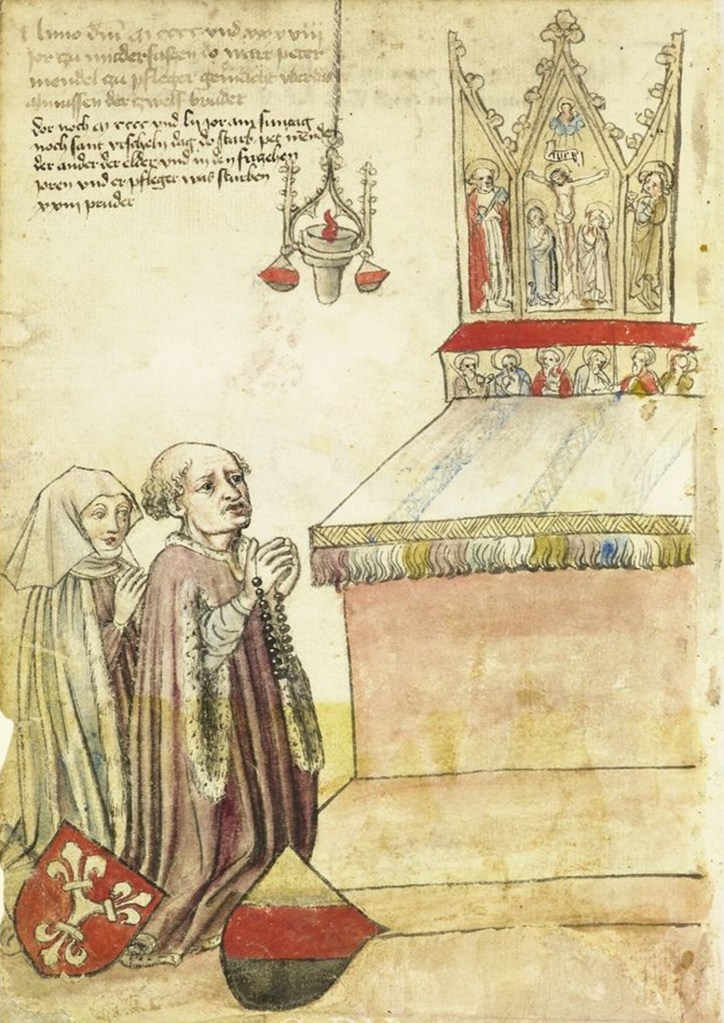 Anno dm̄ m cccc vnd xxxviii
jor zu mitterfasten do wart peter
mendel zu pfleger gemacht vber daz
almussen der zwelf bruder
Dor noch m cccc vnd lij jor am suntag
noch sant vrscheln dag do starb peter mendel
der ander der elder vnd in den
joren vnd er pfleger was sturben
xxiij pruder